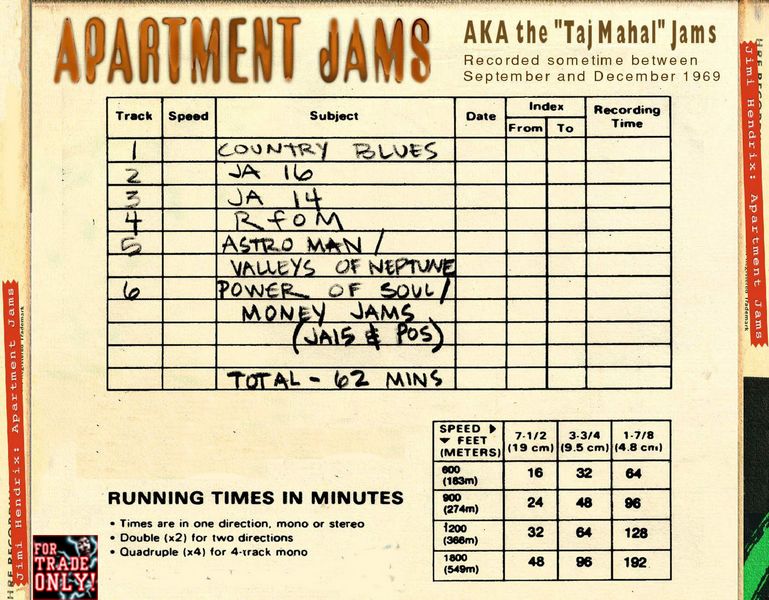 APARTMENT JAMS
AKA the "Taj Mahal" Jams
Recorded sometime between
September and December 1969
Track Speed Subject Date Index From To Recording Time
1 COUNTRY BLUES
2 JA 16
3 JA 14
4 R f o M
5 ASTRO MAN /
VALLEYS OF NEPTUNE
6 POWER OF SOUL /
MONEY JAMS
(JA15 & POS)
TOTAL - 62 MINS
SPEED ▶ 7-1/2 3-3/4 1-7/8
▼ FEET (19 cm) (9.5 cm) (4.8 cm)
(METERS)
600 16 32 64
(183m)
900 24 48 96
(274m)
1200 32 64 128
(366m)
1800 48 96 192
(549m)
RUNNING TIMES IN MINUTES
• Times are in one direction, mono or stereo
• Double (x2) for two directions
• Quadruple (x4) for 4-track mono
FOR
TRADE
ONLY!
Jimi Hendrix: Apartment Jams
Jimi Hendrix: Apartment Jams